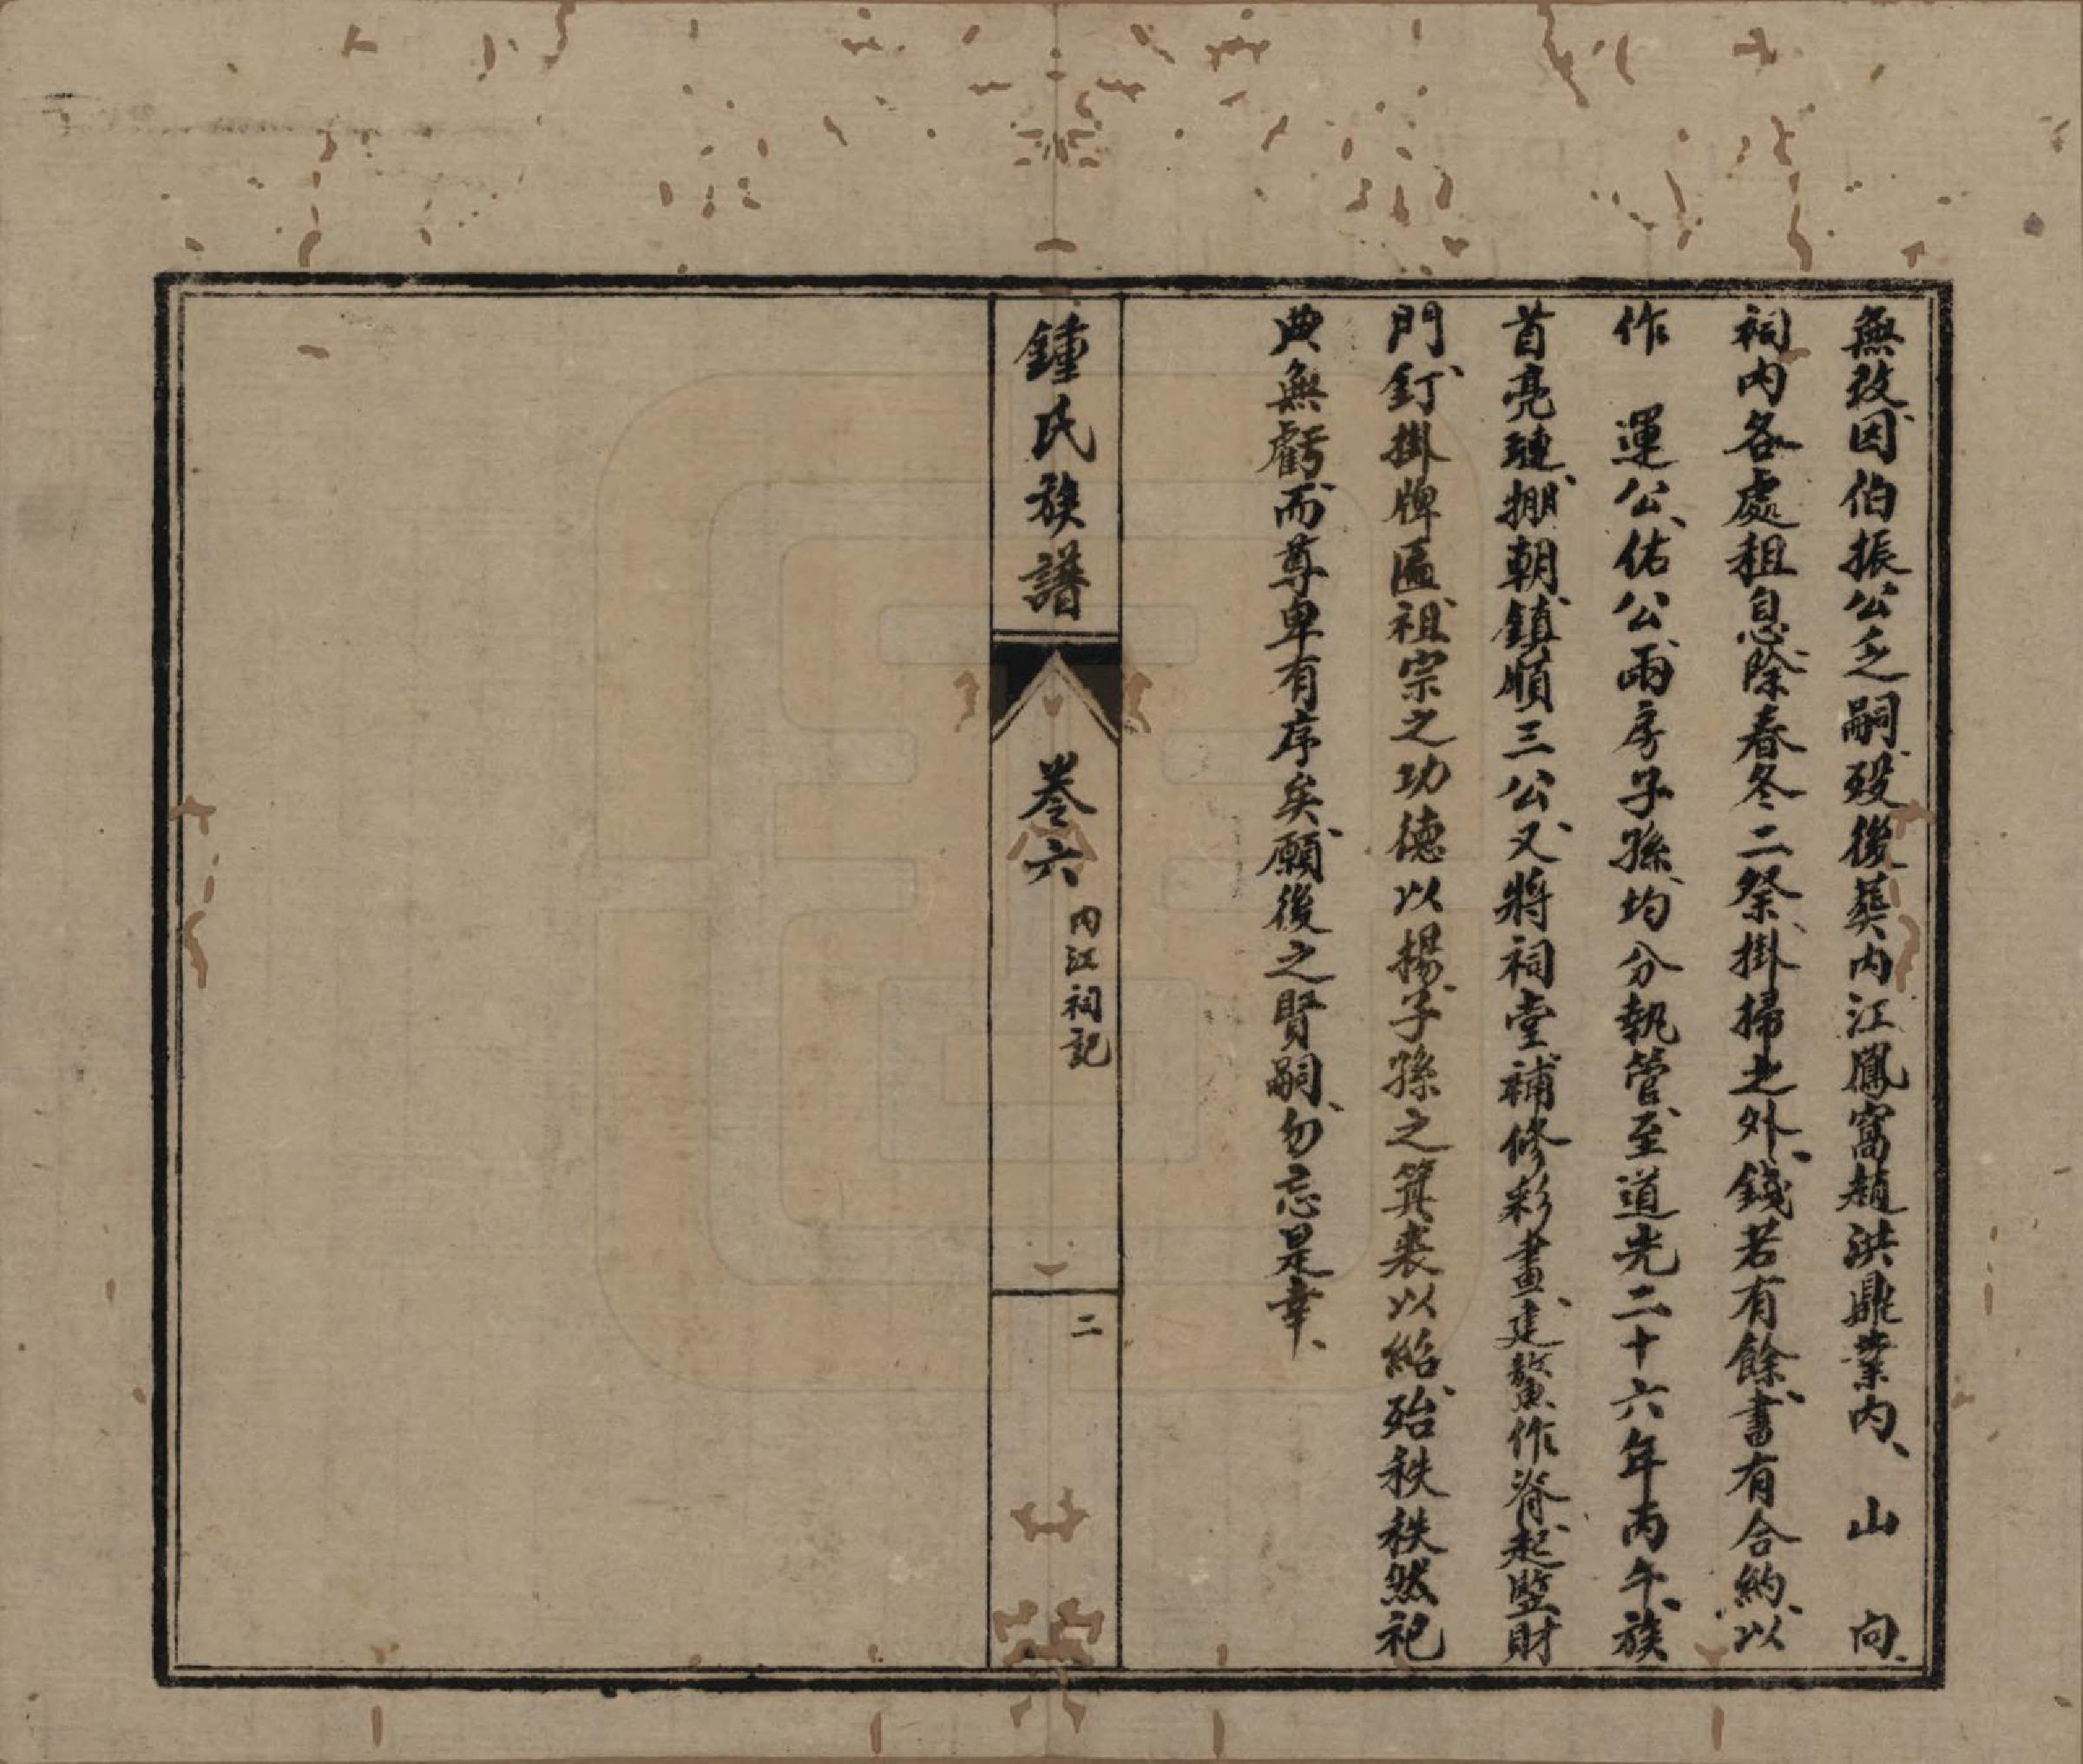 無改、因伯振公乏嗣、歿後葬内江鳳窩趙洪鼎業内、　山　向、
祠内各處租息、除春冬二祭、掛掃之外、錢若有餘、書有合約、以
作　運公、佑公、兩房子孫、均分執管、至道光二十六年丙午、族
首亮璉、掤朝、鎮順三公、又將祠堂補修彩畫、建鰲作脊、起豎財
門、釘掛牌匾、祖宗之功德以揚、子孫之箕裘以紹、殆秩秩然祀
典無虧、而尊卑有序矣、願後之賢嗣、勿忘是幸、
鍾氏族譜
卷六
内江祠記
二